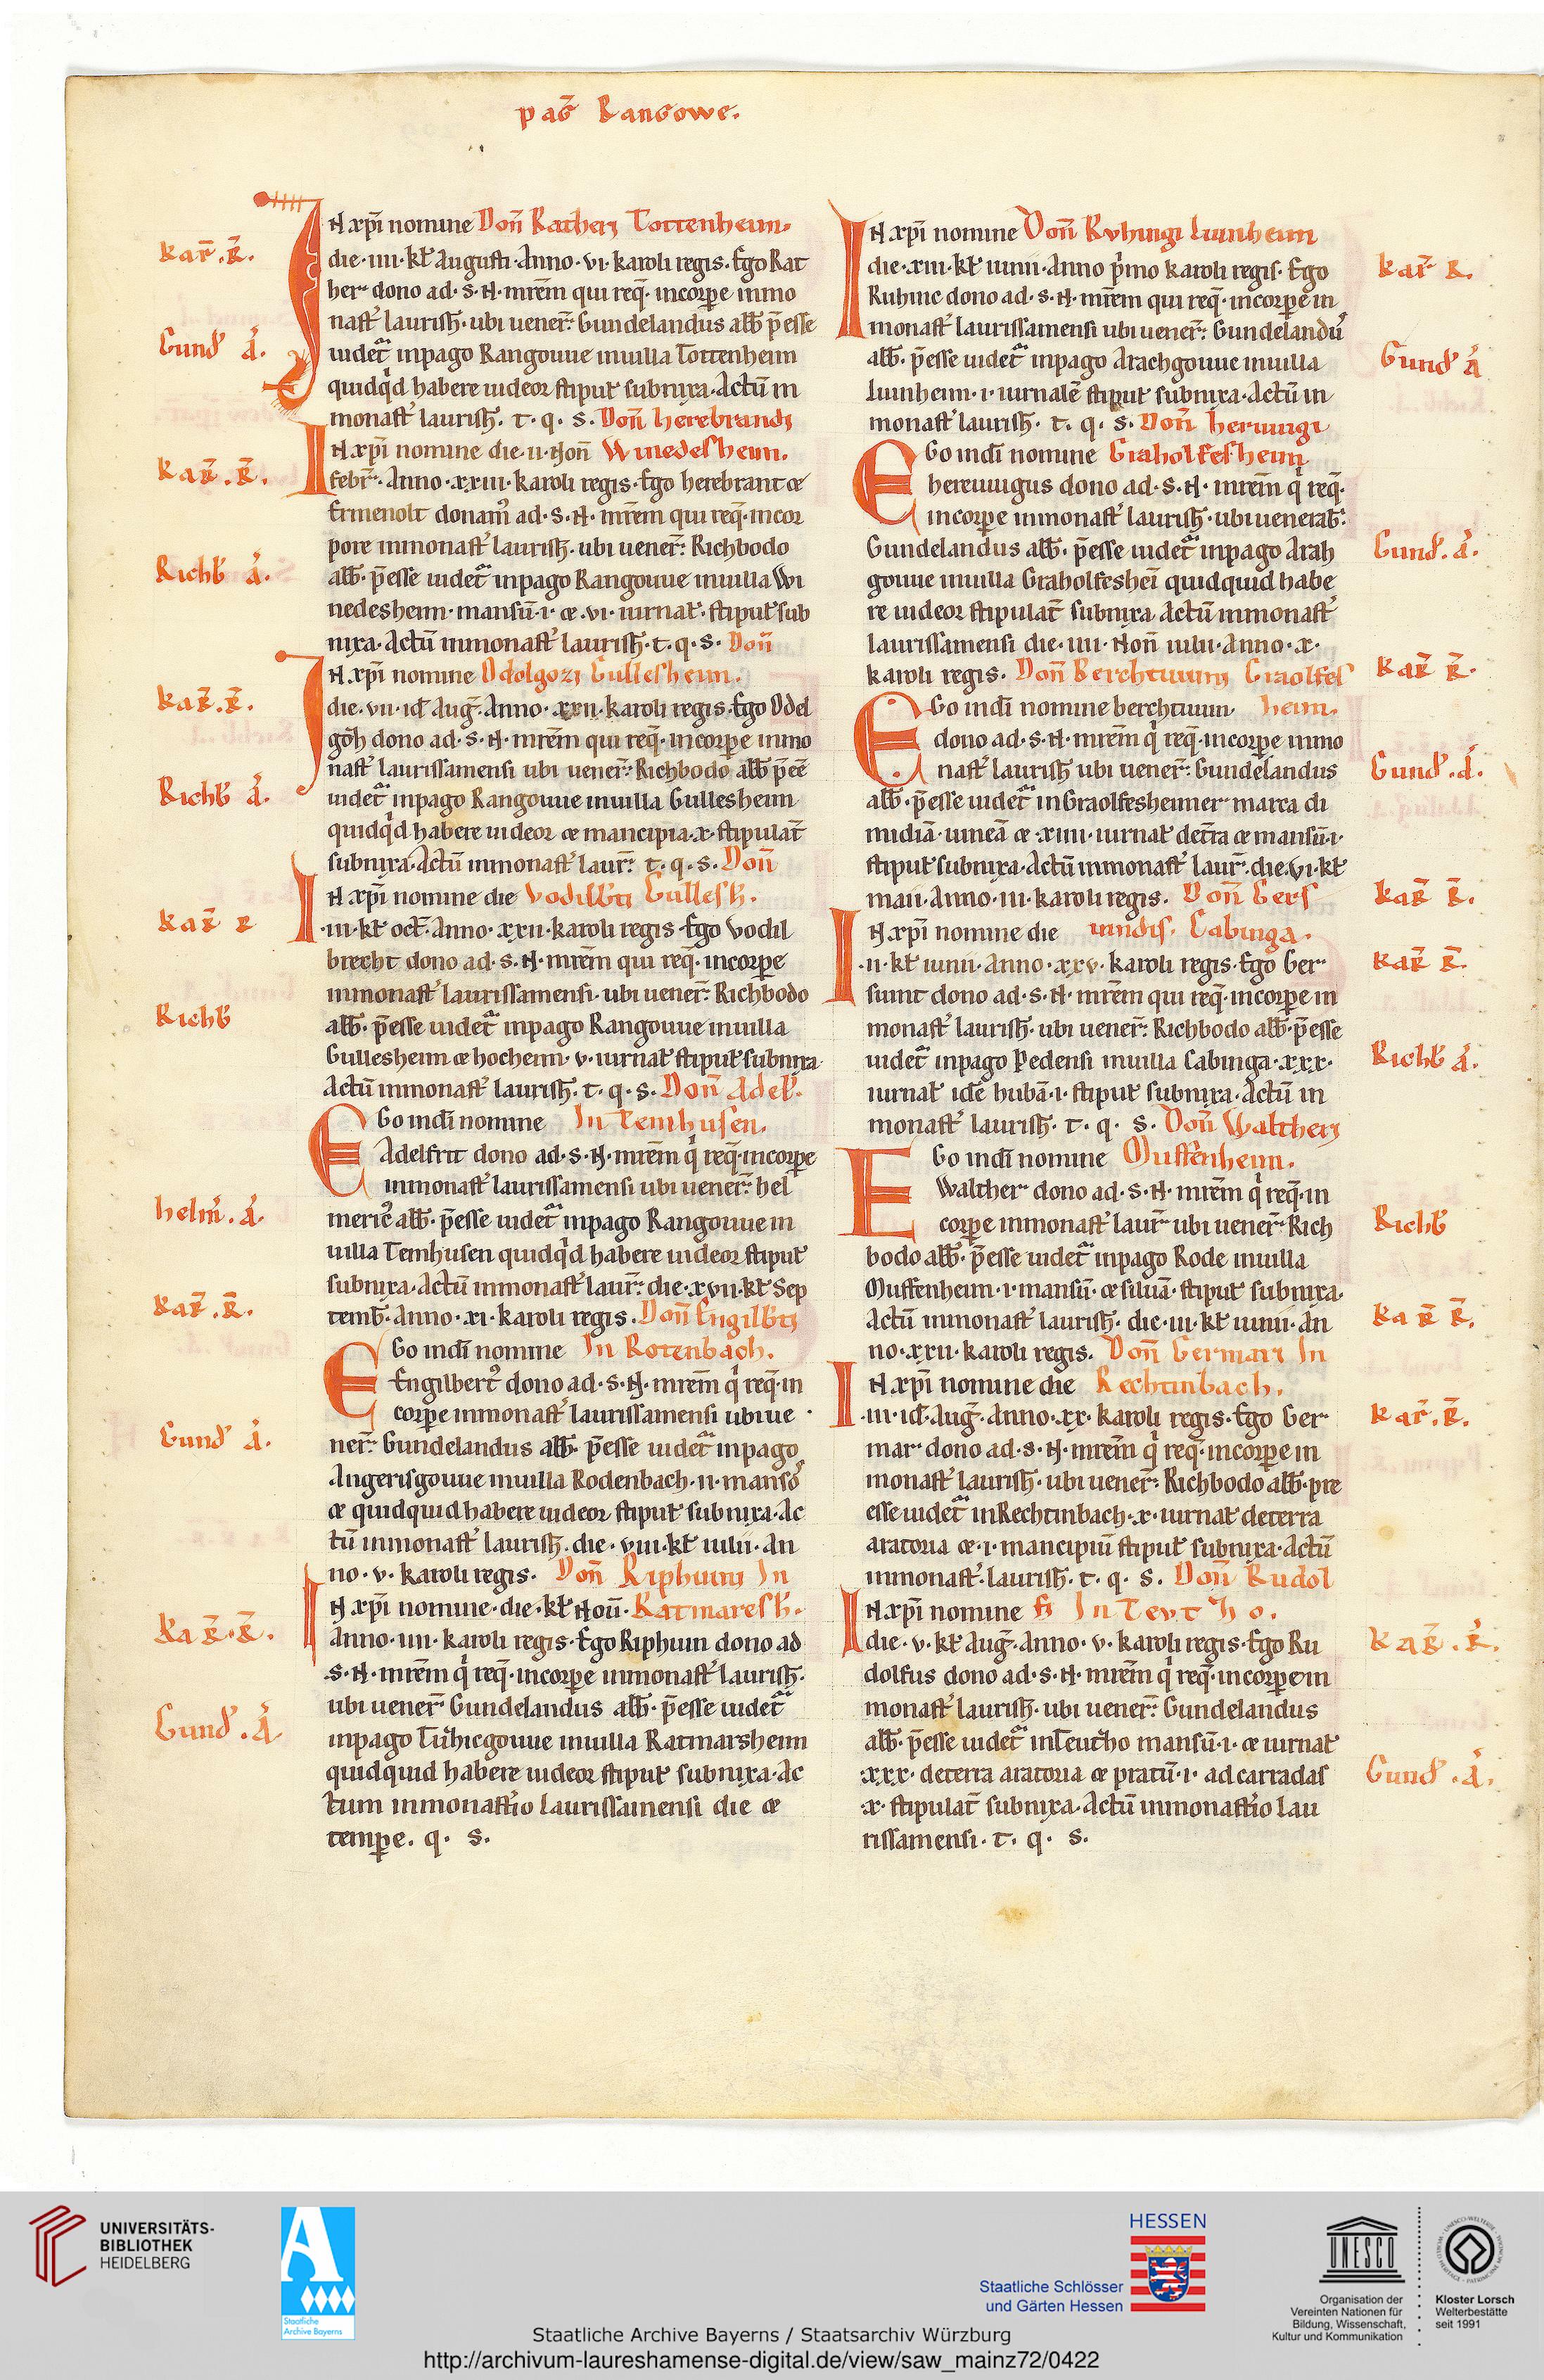 pag̅ Rangowe.
Kar̅. R̅.
Gund' a̅.
Kar̅. R̅.
Richb̅ a̅.
Kar̅. R̅.
Richb̅ a̅.
Kar̅ R
Richb̅
helm̅. a̅.
Kar̅. R̅.
Gund' a̅.
Kar̅. R̅.
Gund'. a̅
IN xp̅i nomine Don̅ Ratheri Tottenheim.
die· iiii· kł Augusti· Anno· vi· karoli regis. Ego Rat
her dono ad· s· N· mr̅em qui req̅· incorpe inmo
nast' laurish̅· ubi uener̅: Gundelandus abb̅ p̅esse
uidet̅ inpago Rangouue inuilla Tottenheim
quidq'd habere uideor stipuł subnixa· Actu̅ in
monast' laurish̅. t. q. s. Don̅ herebrandi
IN xp̅i nomine die· ii· Non̅ Winedesheim.
febr̅· Anno· xxiii· karoli regis· Ego herebrant &
Ermenolt donam' ad· s· N· mr̅em qui req̅· incor
pore inmonast' laurish̅· ubi uener̅: Richbodo
abb̅· p̅esse uidet̅ inpago Rangouue inuilla Wi
nedesheim· mansu̅· i· &· vi· iurnał· stipuł sub
nixa· Actu̅ inmonast' laurish̅· t· q· s· Don̅
IN xp̅i nomine Odolgozi Gullesheim.
die· vii· id̅ Aug̅· Anno· xxii· karoli regis· Ego Odel
goh̅ dono ad· s· N· mr̅em qui req̅· incorpe inmo
nast' laurissamensi ubi uener̅: Richbodo abb̅ p̅ee̅
uidet̅ inpago Rangouue inuilla Gullesheim
quidq'd habere uideor & mancipia· x· stipulat̅
subnixa· Actu̅ inmonast' laur̅: t. q. s. Don̅
IN xp̅i nomine die Vodilb̅ti Gullesh̅.
·iii· kł oct̅· Anno· xxii· karoli regis· Ego Vodil
brecht dono ad· s· N· mr̅em qui req̅· incorpe
inmonast' laurissamensi· ubi uener̅: Richbodo
abb̅· p̅esse uidet̅ inpago Rangouue inuilla
Gullesheim & hocheim· v· iurnał stipuł subnixa·
Actu̅ inmonast' laurish̅. t. q. s. Don̅ Adelf̅.
EGo indi̅ nomine In Temhusen.
Adelfrit dono ad· s· N· mr̅em q' req̅· incorpe
inmonast' laurissamensi ubi uener̅: hel
meric' abb̅· p̅esse uidet̅ inpago Rangouue in
uilla Temhusen quidq'd habere uideor stipuł
subnixa· Actu̅ inmonast' laur̅: die· xvii· kł Sep
temb̅· Anno· xi· karoli regis. Don̅ Engilb̅ti
EGo indi̅ nomine In Rotenbach.
Engilbert' dono ad· s· N· mr̅em q' req̅· in
corpe inmonast' laurissamensi ubi ue
ner̅: Gundelandus abb̅· p̅esse uidet̅ inpago
Angerisgouue inuilla Rodenbach· ii· manso̅
& quidquid habere uideor stipuł subnixa· Ac
tu̅ inmonast' laurish̅· die· viii· kł iulii· An
no· v· karoli regis. Don̅ Riphuini In
IN xp̅i nomine· die· kł Nou̅· Ratmaresh̅.
Anno· iiii· karoli regis· Ego Riphuin dono ad
s· N· mr̅em q' req̅· incorpe inmonast' laurish̅·
ubi uener̅ Gundelandus abb̅· p̅esse uidet̅
inpago Tubicgouue inuilla Ratmarsheim
quidquid habere uideor stipuł subnixa· Ac
tum inmonastio laurissamensi die &
tempe. q. s.
IN xp̅i nomine Don̅ Rvhingi Luinheim
die· xiii· kł iunii· Anno p'mo karoli regis· Ego
Ruhinc dono ad· s· N· mr̅em qui req̅· incorpe in
monast' laurissamensi ubi uener̅: Gundelandu'
abb̅· p̅esse uidet̅ inpago Arachgouue inuilla
Luinheim· i· iurnale̅ stipuł subnixa· Actu̅ in
monast' laurish̅. t. q. s. Don̅ heruuigi
EGo indi̅ nomine Graholfesheim
hereuuigus dono ad· s· N· mr̅em q' req̅·
incorpe inmonast' laurish̅· ubi uenerab̅:
Gundelandus abb̅· p̅esse uidet̅ inpago Arah
gouue inuilla Graholfeshei̅ quidquid habe
re uideor stipulat̅ subnixa· Actu̅ inmonast'
laurissamensi die· iiii· Non̅ iulii· Anno· x·
karoli regis. Don̅ Berchtuuini Graolfes
EGo indi̅ nomine berchtuuin heim.
dono ad· s· N· mr̅em q' req̅· incorpe inmo
nast' laurish̅ ubi uener̅: Gundelandus
abb̅· p̅esse uidet̅ inGraolfesheimer marca di
midia̅· uinea̅ & xiiii· iurnał det̅ra & mansu̅· i·
stipuł subnixa· Actu̅ inmonast' laur̅· die· vi· kł
maii· Anno· iii· karoli regis. Don̅ Gers
IN xp̅i nomine die uindis. Cabinga.
·ii· kł iunii· Anno· xxv· karoli regis· Ego Ger
suint dono ad· s· N· mr̅em qui req̅· incorpe in
monast' laurish̅· ubi uener̅: Richbodo abb̅· p̅esse
uidet̅ inpago Pedensi inuilla Cabinga· xxx·
iurnał ide̅ huba̅· i· stipuł subnixa· Actu̅ in
monast' laurish̅. t. q. s. Don̅ Waltheri
EGo indi̅ nomine Ouffenheim.
Walther dono ad· s· N· mr̅em q' req̅· in
corpe inmonast' laur̅ ubi uener̅: Rich
bodo abb̅· p̅esse uidet̅ inpago Rode inuilla
Ouffenheim· i· mansu̅· & silua̅· stipuł subnixa·
Actu̅ inmonast' laurish̅· die· iii· kł iunii· An
no· xxii· karoli regis. Don̅ Germari In
IN xp̅i nomine die Rechtinbach.
·iii· id̅· Aug̅· Anno· xx· karoli regis· Ego Ger
mar dono ad· s· N· mr̅em q' req̅· incorpe in
monast' laurish̅· ubi uener̅: Richbodo abb̅· pre
esse uidet̅ inRechtinbach· x· iurnał deterra
aratoria &· i· mancipiu̅ stipuł subnixa· Actu̅
inmonast'· laurish̅. t. q. s. Don̅ Rudol
IN xp̅i nomine fi In Tevtho.
die· v· kł Aug̅· Anno· v· karoli regis· Ego Ru
dolfus dono ad· s· N· mr̅em q' req̅· incorpe in
monast' laurish̅· ubi uener̅: Gundelandus
abb̅· p̅esse uidet̅ inTeutho mansu̅· i· & iurnał
·xxx· deterra aratoria & pratu̅· i· ad carradas
·x· stipulat̅ subnixa· Actu̅ inmonastio lau
rissamensi· t. q. s.
Kar̅ R.
Gund' a̅
Gund'. a̅.
Kar̅ R̅.
Gund'. a̅.
Kar̅ R̅.
Kar̅ R̅.
Richb̅ a̅.
Richb̅
Kar̅ R̅.
Kar̅. R̅.
Kar̅. R̅.
Gund'. a̅.
UNIVERSITÄTS-
BIBLIOTHEK
HEIDELBERG
Staatliche
Archive Bayerns
HESSEN
Staatliche Schlösser
und Gärten Hessen
UNESCO
Organisation der
Vereinten Nationen für
Bildung, Wissenschaft,
Kultur und Kommunikation
Kloster Lorsch
Welterbestätte
seit 1991
Staatliche Archive Bayerns / Staatsarchiv Würzburg
http://archivum-laureshamense-digital.de/view/saw_mainz72/0422